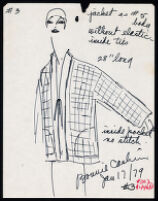 #3
jacket as #5
body
without elastic
inside ties
28" long
inside pocket
no stitch
Bonnie Cashin
Jan 17/79
#3